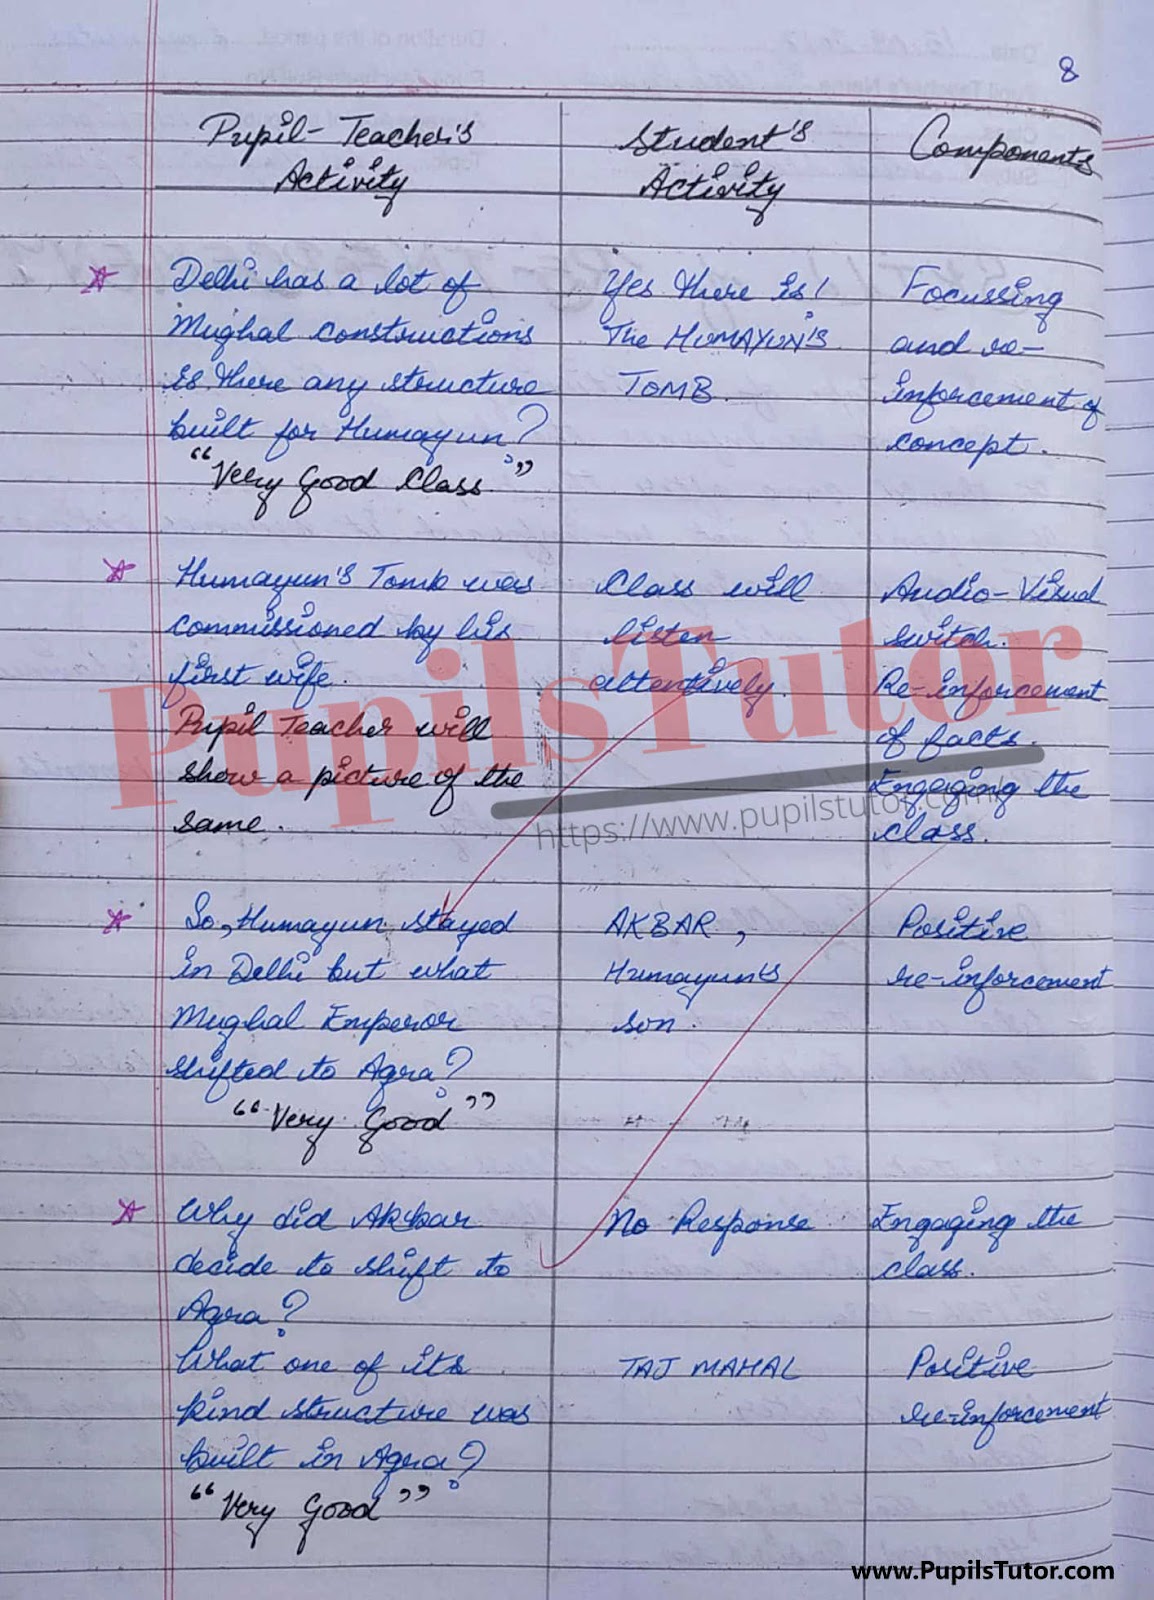 8
Pupil-Teacher's
Activity
Student's
Activity
Components
Delhi has a lot of
Mughal constructions
is there any structure
built for Humayun?
"Very Good Class"
Yes there is!
The HUMAYUN'S
TOMB.
Focussing
and re-
inforcement of
concept.
Humayun's Tomb was
commissioned by his
first wife.
Pupil Teacher will
show a picture of the
same.
Class will
listen
attentively.
Audio-Visual
switch.
Re-inforcement
of facts.
Engaging the
class.
PupilsTutor
https://www.pupilstutor.com
So, Humayun stayed
in Delhi but what
Mughal Emperor
shifted to Agra?
"Very Good"
AKBAR,
Humayun's
son.
Positive
re-inforcement
Why did Akbar
decide to shift to
Agra?
What one of its
kind structure was
built in Agra?
"Very Good"
No Response
TAJ MAHAL
Engaging the
class.
Positive
re-inforcement
www.PupilsTutor.com